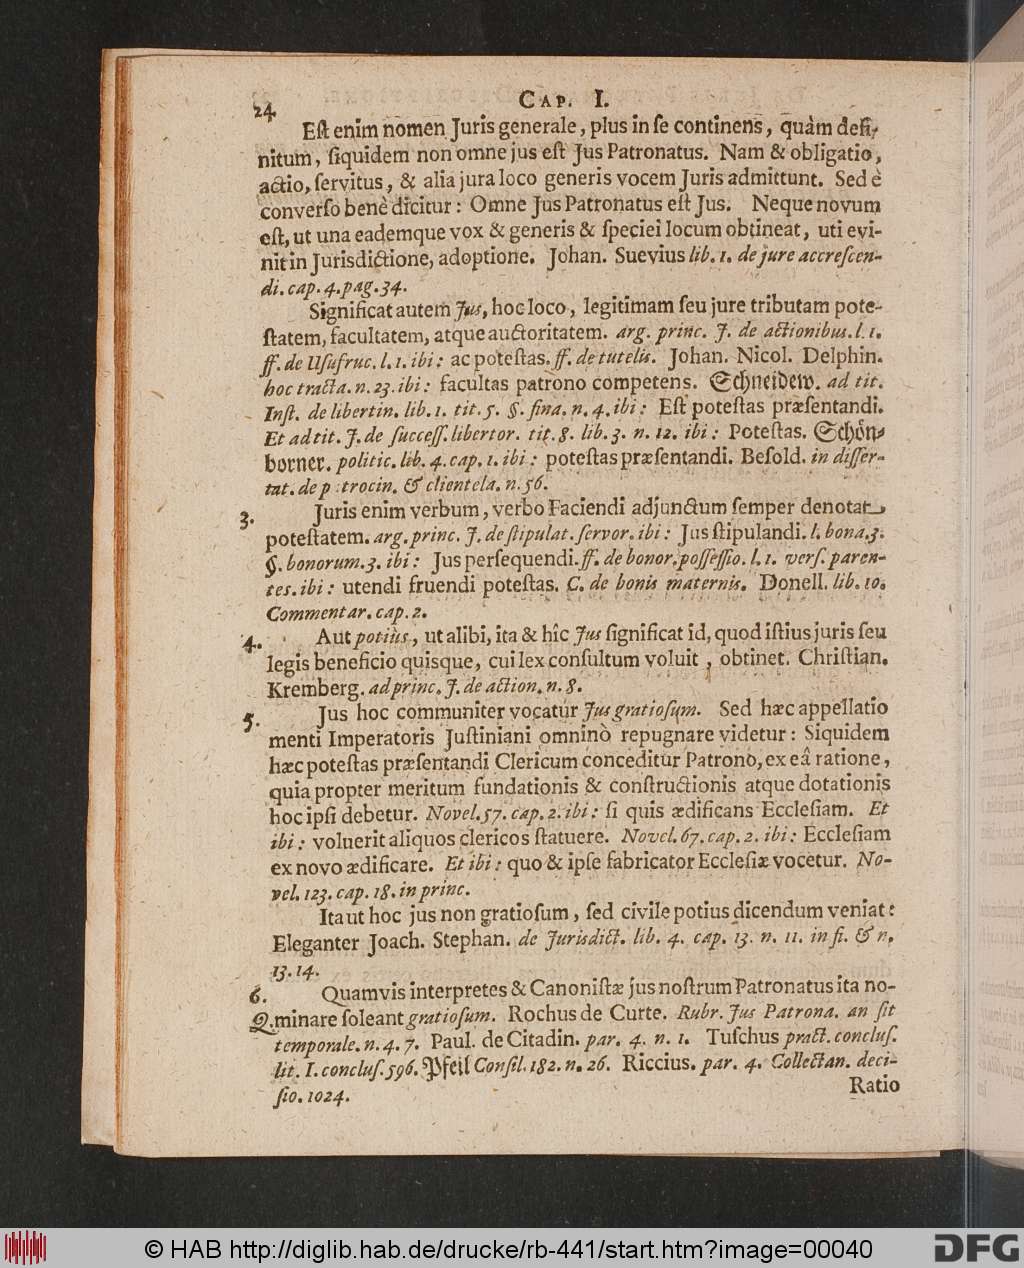 24. CAP. I.
Eſt enim nomen Juris generale, plus in ſe continens, quàm defi-
nitum, ſiquidem non omne jus eſt Jus Patronatus. Nam & obligatio,
actio, ſervitus, & alia jura loco generis vocem Juris admittunt. Sed è
converſo benè dicitur: Omne Jus Patronatus eſt Jus. Neque novum
eſt, ut una eademque vox & generis & ſpeciei locum obtineat, uti evi-
nit in Jurisdictione, adoptione. Johan. Suevius lib. 1. de jure accreſcen-
di. cap. 4. pag. 34.
Significat autem Jus, hoc loco, legitimam ſeu jure tributam pote-
ſtatem, facultatem, atque auctoritatem. arg. princ. J. de actionibus. l. 1.
ff. de Uſufruc. l. 1. ibi: ac poteſtas. ff. de tutelis. Johan. Nicol. Delphin.
hoc tracta. n. 23. ibi: facultas patrono competens. Schneidew. ad tit.
Inſt. de libertin. lib. 1. tit. 5. §. fina. n. 4. ibi: Eſt poteſtas præſentandi.
Et ad tit. J. de ſucceſſ. libertor. tit. 8. lib. 3. n. 12. ibi: Poteſtas. Schön-
borner. politic. lib. 4. cap. 1. ibi: poteſtas præſentandi. Beſold. in diſſer-
tat. de p trocin. & clientela. n. 56.
3. Juris enim verbum, verbo Faciendi adjunctum ſemper denotat
poteſtatem. arg. princ. J. de ſtipulat. ſervor. ibi: Jus ſtipulandi. l. bona. 3.
§. bonorum. 3. ibi: Jus perſequendi. ff. de bonor. poſſeſſio. l. 1. verſ. paren-
tes. ibi: utendi fruendi poteſtas. C. de bonis maternis. Donell. lib. 10.
Commentar. cap. 2.
4. Aut potiùs, ut alibi, ita & hîc Jus ſignificat id, quod iſtius juris ſeu
legis beneficio quisque, cui lex conſultum voluit, obtinet. Chriſtian.
Kremberg. ad princ. J. de action. n. 8.
5. Jus hoc communiter vocatur Jus gratioſum. Sed hæc appellatio
menti Imperatoris Juſtiniani omninò repugnare videtur: Siquidem
hæc poteſtas præſentandi Clericum conceditur Patrono, ex eâ ratione,
quia propter meritum fundationis & conſtructionis atque dotationis
hoc ipſi debetur. Novel. 57. cap. 2. ibi: ſi quis ædificans Eccleſiam. Et
ibi: voluerit aliquos clericos ſtatuere. Novel. 67. cap. 2. ibi: Eccleſiam
ex novo ædificare. Et ibi: quo & ipſe fabricator Eccleſiæ vocetur. No-
vel. 123. cap. 18. in princ.
Ita ut hoc jus non gratioſum, ſed civile potius dicendum veniat:
Eleganter Joach. Stephan. de Jurisdict. lib. 4. cap. 13. n. 11. in fi. & n.
13. 14.
6. Quamvis interpretes & Canoniſtæ jus noſtrum Patronatus ita no-
Q. minare ſoleant gratioſum. Rochus de Curte. Rubr. Jus Patrona. an ſit
temporale. n. 4. 7. Paul. de Citadin. par. 4. n. 1. Tuſchus pract. concluſ.
lit. I. concluſ. 596. Pfeil Conſil. 182. n. 26. Riccius. par. 4. Collectan. deci-
ſio. 1024.
Ratio
© HAB http://diglib.hab.de/drucke/rb-441/start.htm?image=00040
DFG